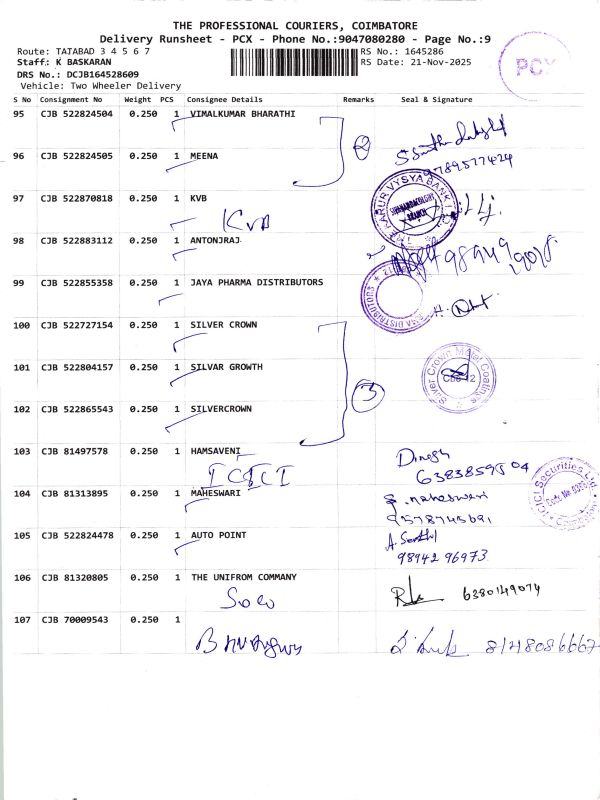 THE PROFESSIONAL COURIERS, COIMBATORE
Delivery Runsheet - PCX - Phone No.:9047080280 - Page No.:9
Route: TATABAD 3 4 5 6 7
RS No.: 1645286
Staff: K BASKARAN
RS Date: 21-Nov-2025
PCX
DRS No.: DCJB164528609
Vehicle: Two Wheeler Delivery
S No Consignment No Weight PCS Consignee Details Remarks Seal & Signature
95 CJB 522824504 0.250 1 VIMALKUMAR BHARATHI
2
9789577424
96 CJB 522824505 0.250 1 MEENA
97 CJB 522870818 0.250 1 KVB
KVB
KARUR VYSYA BANK
BRANCH
98 CJB 522883112 0.250 1 ANTONJRAJ
99 CJB 522855358 0.250 1 JAYA PHARMA DISTRIBUTORS
DISTRIBUTORS
100 CJB 522727154 0.250 1 SILVER CROWN
101 CJB 522804157 0.250 1 SILVAR GROWTH
3
Silver Crown Metal Coatings
102 CJB 522865543 0.250 1 SILVERCROWN
103 CJB 81497578 0.250 1 HAMSAVENI
ICICI
Dinesh
6383859504
ICICI Securities Ltd.
Coimbatore
104 CJB 81313895 0.250 1 MAHESWARI
S. maheswari
9578745691
105 CJB 522824478 0.250 1 AUTO POINT
98942 96973
106 CJB 81320805 0.250 1 THE UNIFROM COMMANY
6380149074
107 CJB 70009543 0.250 1
8148086667